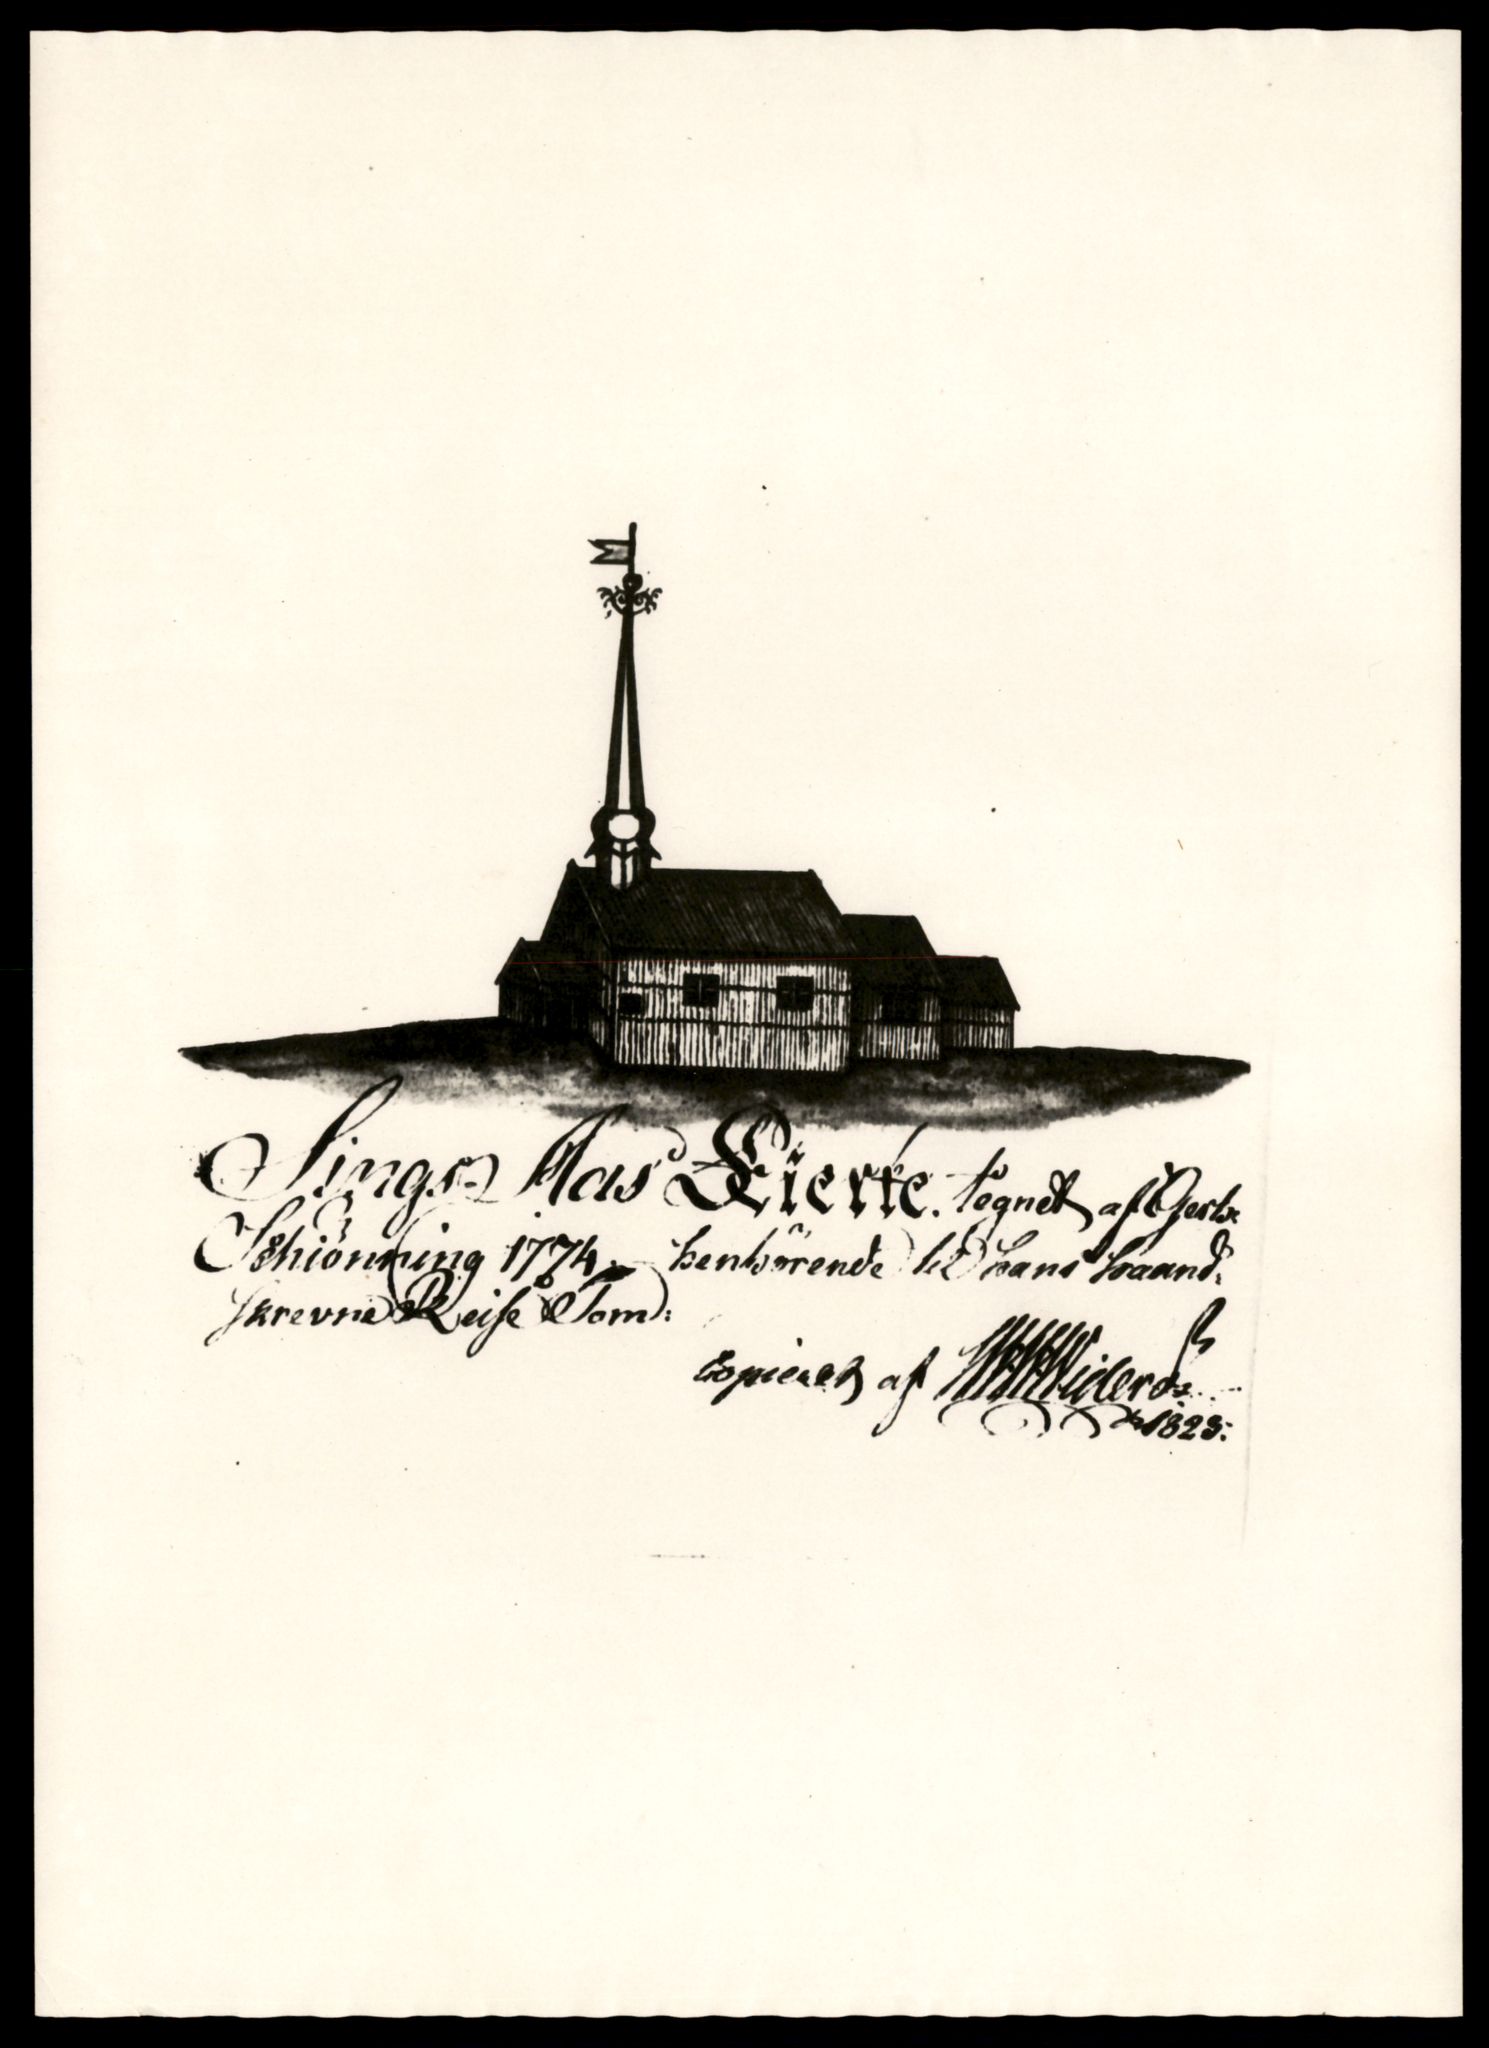 Singsaas Kierke. tegnet af Gerh:
Schiönning 1774. henhörende til hans haand:
skrevne Reise Tom:
Copieret af
1823: